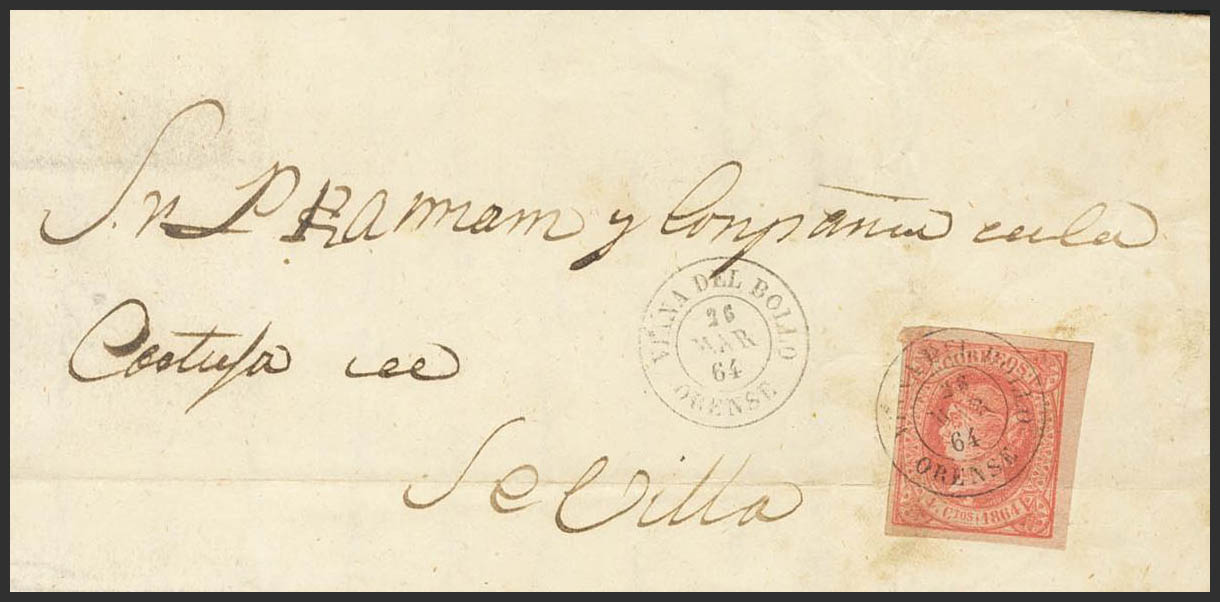 Sr. P
y Conpañia en la
Cartuja de
Sevilla
VIANA DEL BOLLO
26
MAR
64
ORENSE
CORREOS
64
ORENSE
4 CTOS. 1864